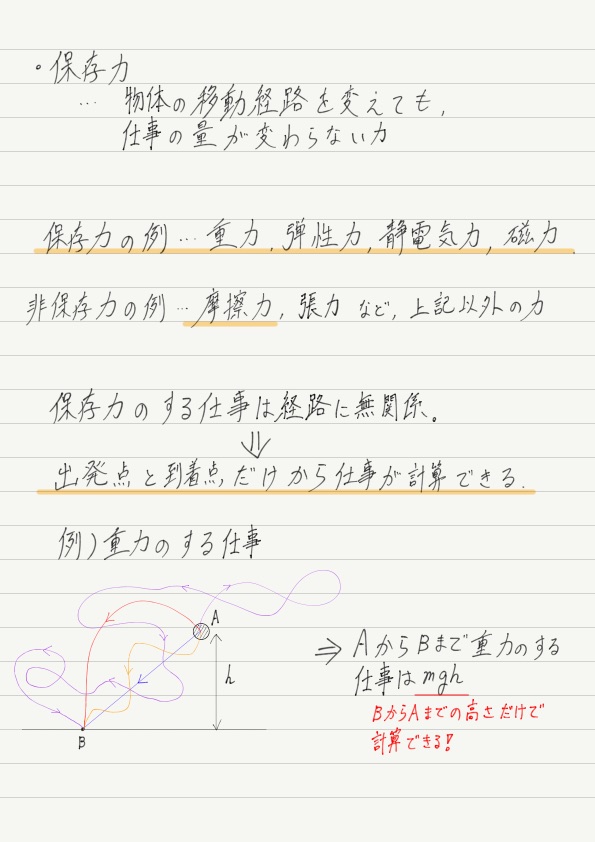 ・保存力
… 物体の移動経路を変えても,
仕事の量が変わらない力
保存力の例 … 重力, 弾性力, 静電気力, 磁力.
非保存力の例 … 摩擦力, 張力 など, 上記以外の力
保存力のする仕事は経路に無関係。
⇓
出発点と到着点だけから仕事が計算できる.
例) 重力のする仕事
A
h
B
⇒ AからBまで重力のする
仕事は mgh
BからAまでの高さだけで
計算できる!